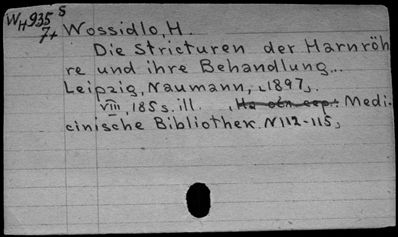 WH935 S
7+ Wossidlo, H.
Die Stricturen der Harnröh
re und ihre Behandlung...
Leipzig, Naumann, [1897].
VIII, 185 s. ill. , Medi-
cinische Bibliothek. N112-115,